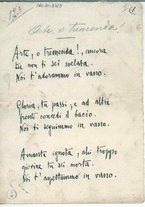 Arte, o tremenda!
Arte, o tremenda!, ancora
tu non ti sei svelata.
Noi t'adorammo in vano.
Gloria, tu passi, e ad altri
fronte concedi il bacio.
Noi ti seguimmo in vano.
Amante ignota, ahi troppo
giovine tu sei morta.
Noi t'aspettammo in vano.